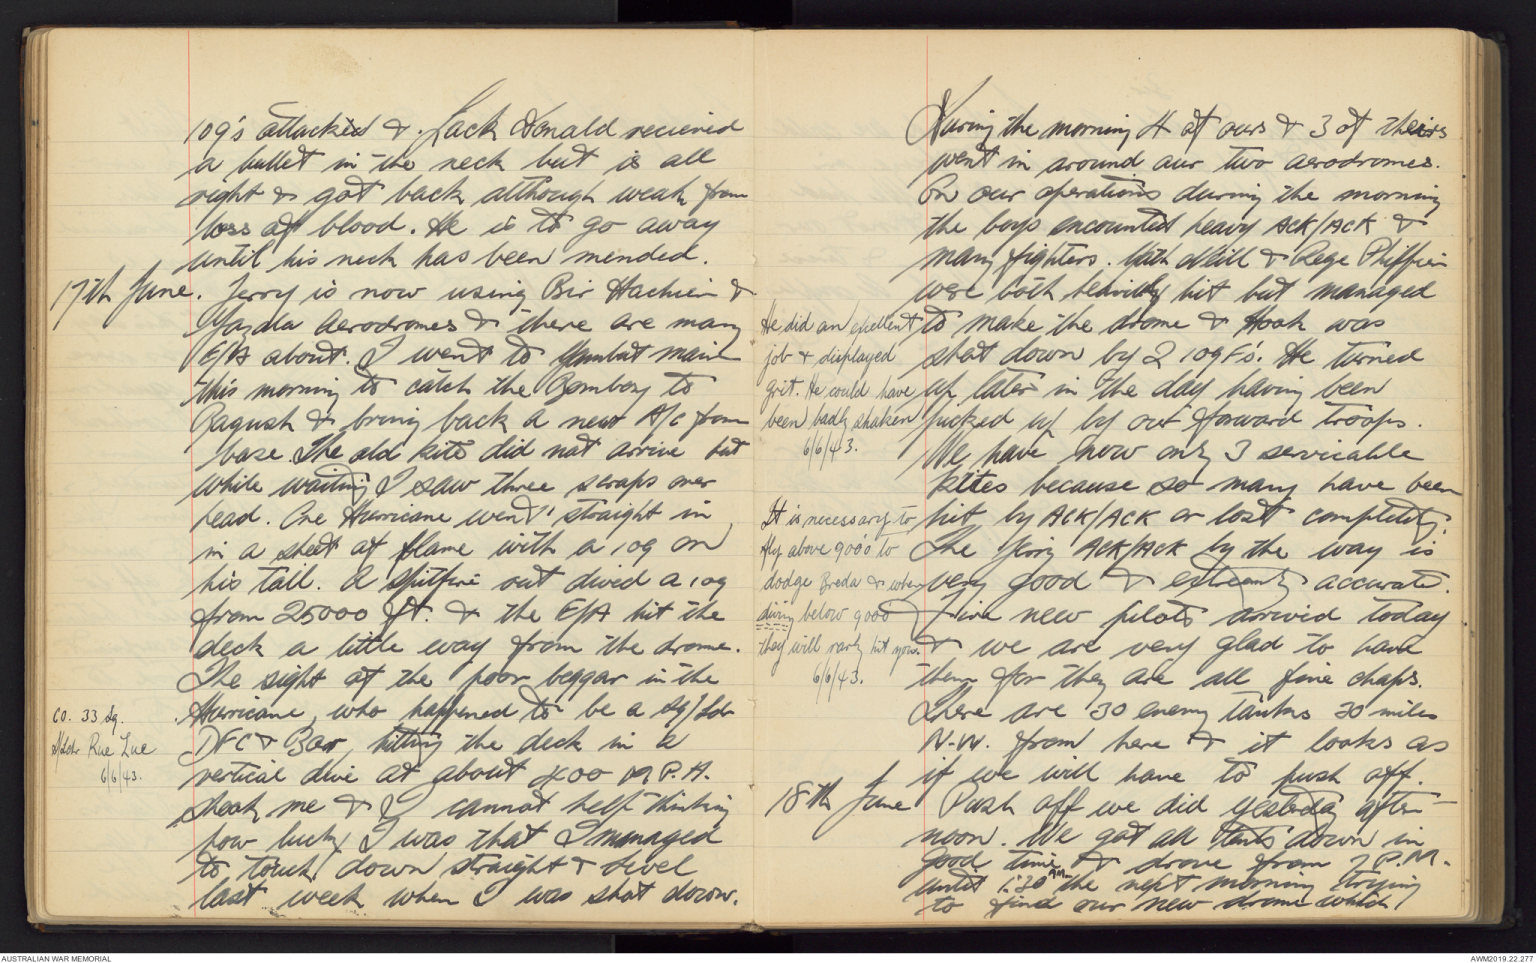 109's attacked & Jack Donald recieved
a bullet in the neck but is all
right & got back although weak from
loss of blood. He is to go away
until his neck has been mended.
17th June. Jerry is now using Bir Hachiem &
Gazala Aerodromes & there are many
E/A about. I went to Gambut main
this morning to catch the Bombay to
Bagush & bring back a new A/C from
base. The old kite did not arrive but
while waiting I saw three scraps over
head. One Hurricane went straight in,
in a sheet of flame with a 109 on
his tail. A Spitfire out dived a 109
from 25000 ft. & the E/A hit the
deck a little way from the drome.
The sight of the poor beggar in the
Hurricane, who happened to be a Sq/Ldr
DFC & Bar, hitting the deck in a
vertical dive at about 400 M.P.H.
shook me & I cannot help thinking
how lucky I was that I managed
to touch down straight & level
last week when I was shot down.
CO. 33 Sq.
S/Ldr
6/6/43.
During the morning 4 of ours & 3 of theirs
went in around our two aerodromes.
On our operations during the morning
the boys encounted heavy ACK/ACK &
many fighters. Keith Neill & Rege Pfeiffer
were both heavily hit but managed
to make the drome & Hook was
shot down by 2 109F's. He turned
up later in the day having been
picked up by our forward troops.
We have now only 3 servicable
kites because so many have been
hit by ACK/ACK or lost completely.
The Jerry ACK/ACK by the way is
very good & extreamly accurate.
Five new pilots arrived today
& we are very glad to have
them for they are all fine chaps.
There are 30 enemy tanks 20 miles
N.W. from here & it looks as
if we will have to push off.
He did an excellent
job & displayed
grit. He could have
been badly shaken
6/6/43.
It is necessary to
fly above 9000 to
dodge Breda & when
diving below 9000
they will rarely hit you.
6/6/43.
18th June Push off we did yesterday after-
noon. We got all tents down in
good time & drove from 7 P.M.
until 1:30 AM the next morning trying
to find our new drome which